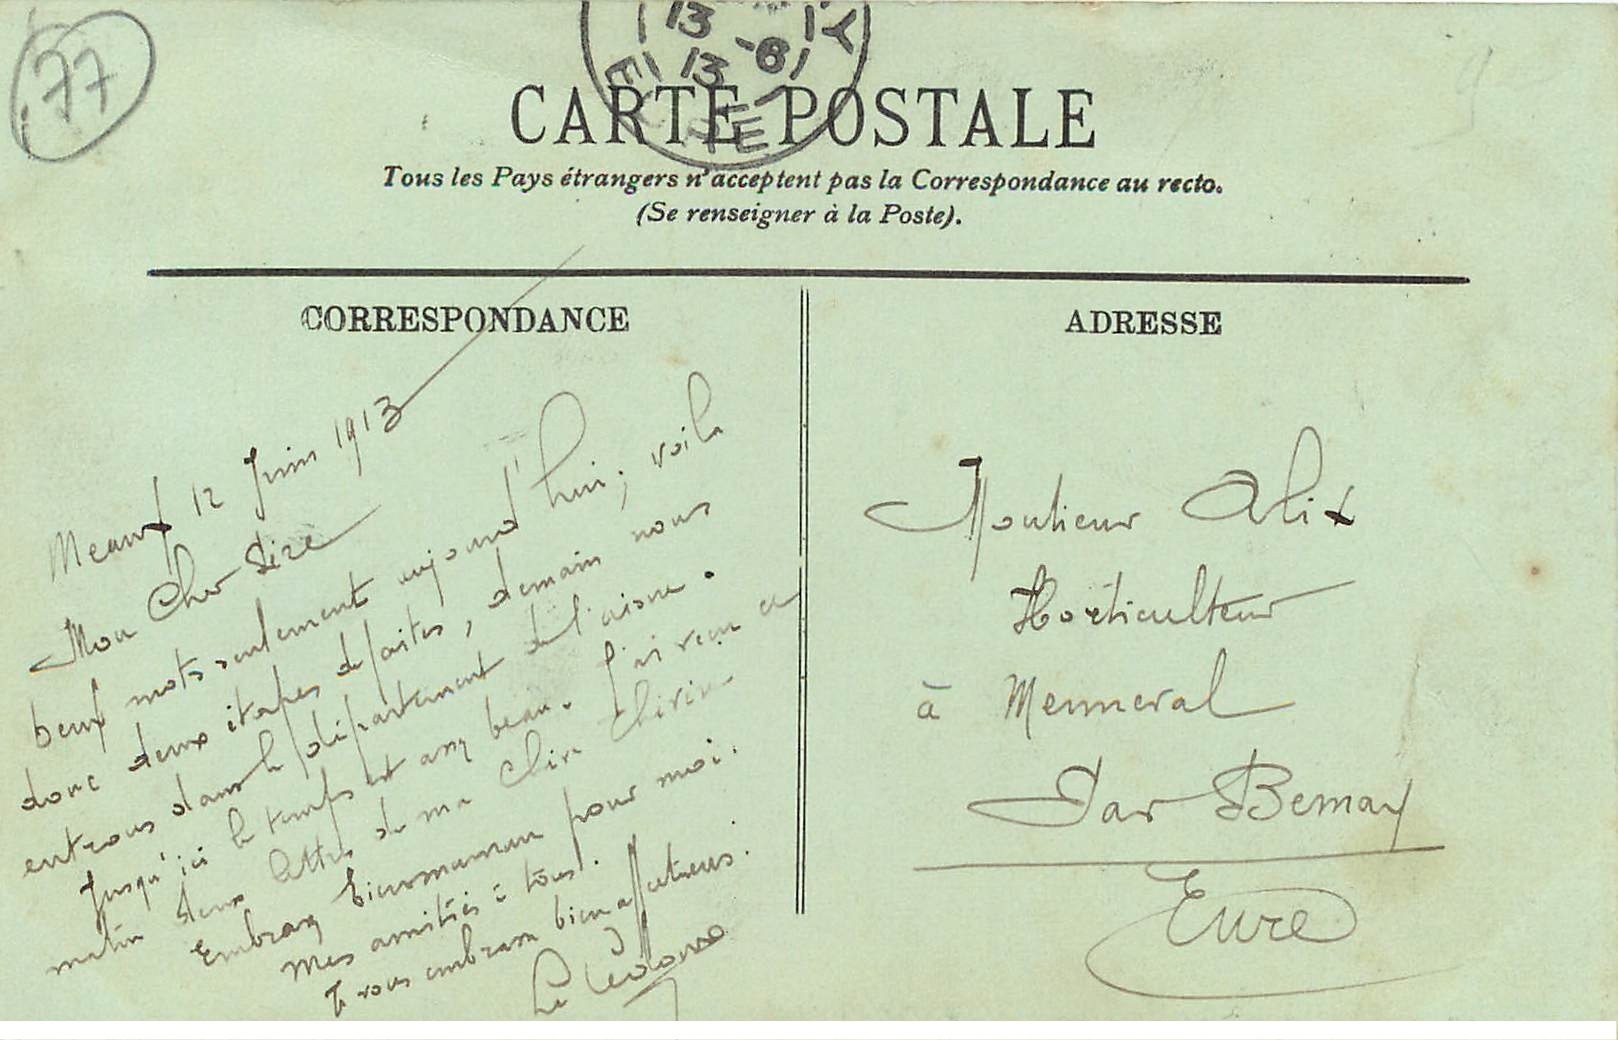 77
13
13 -6
CARTE POSTALE
Tous les Pays étrangers n'acceptent pas la Correspondance au recto.
(Se renseigner à la Poste).
CORRESPONDANCE
Meaux 12 Juin 1913
Mon Cher
deux mots seulement aujourd'hui ; voila
donc deux étapes de faites, demain nous
entrons dans le département de l'aisne.
Jusqu'ici le temps est assez beau. J'ai reçu ce
matin deux lettres de ma Chère
Embrassez bien maman pour moi.
Mes amitiés à tous.
Je vous embrasse bien affectueus.
ADRESSE
Monsieur Alix
Horticulteur
à Menneval
Par Bernay
Eure